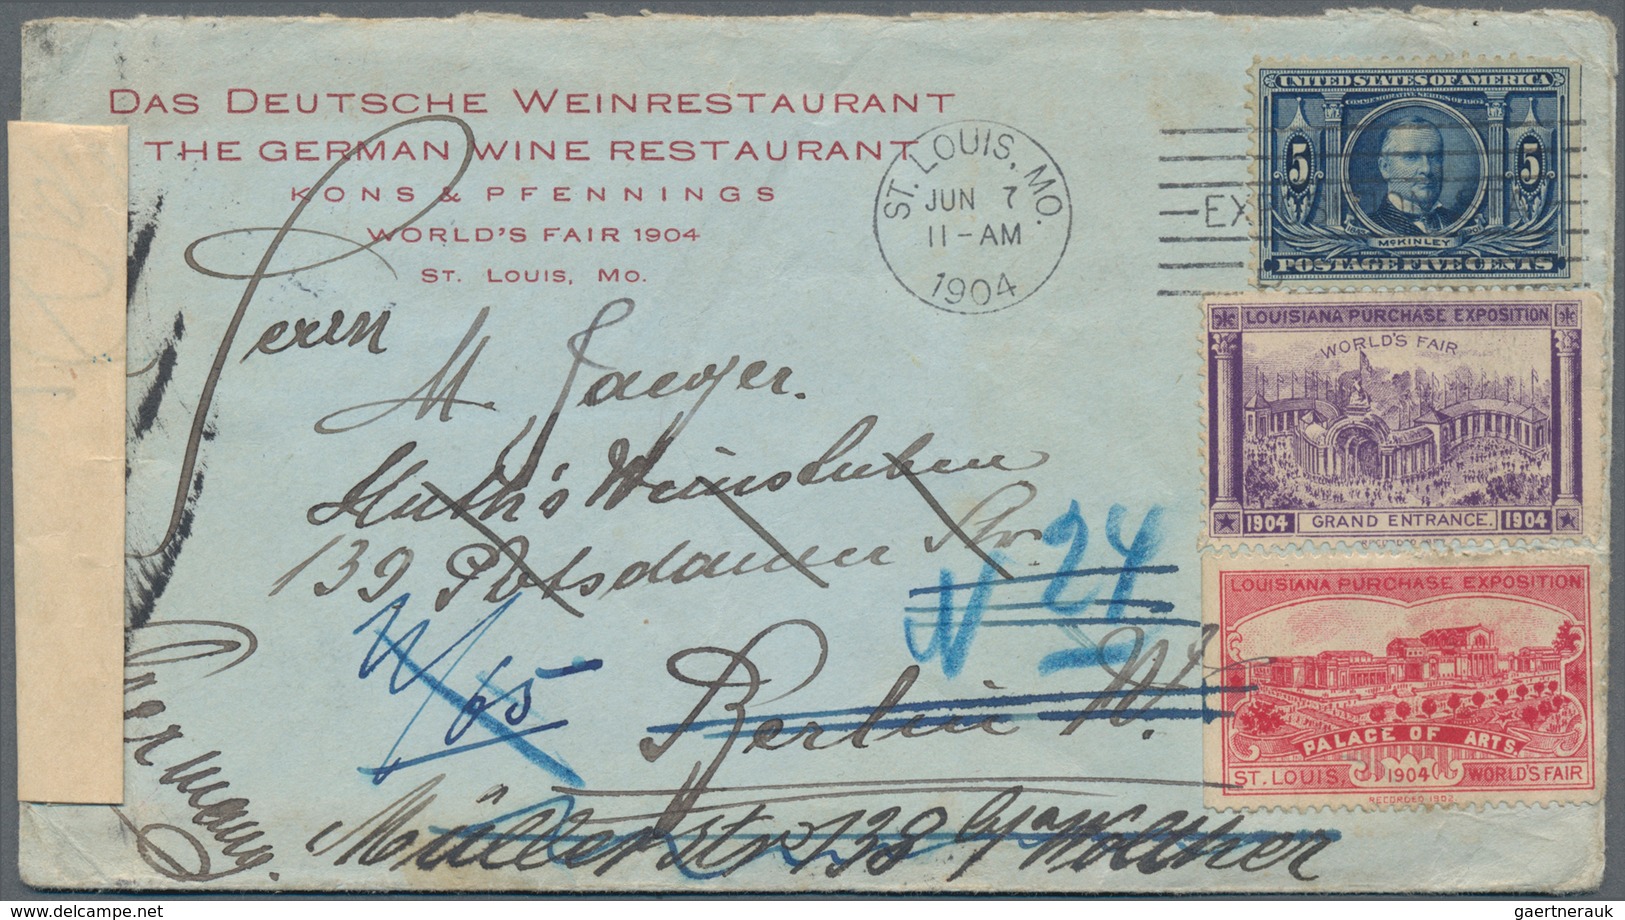 DAS DEUTSCHE WEINRESTAURANT
THE GERMAN WINE RESTAURANT
KONS & PFENNINGS
WORLD'S FAIR 1904
ST. LOUIS, MO.
ST. LOUIS, MO.
JUN 7
11-AM
1904
UNITED STATES OF AMERICA
COMMEMORATIVE SERIES OF 1904
5 5
MCKINLEY
POSTAGE FIVE CENTS
LOUISIANA PURCHASE EXPOSITION
WORLD'S FAIR
1904 GRAND ENTRANCE. 1904
LOUISIANA PURCHASE EXPOSITION
PALACE OF ARTS.
ST. LOUIS, 1904 WORLD'S FAIR
RECORDED 1902
Herrn
M. Jaeger.
Huth's Weinstuben
139 Potsdamer Str.
N 24
N 65
Berlin W.
Germany.
Müllerstr 138 Walther
delcampe.net
gaertnerauk